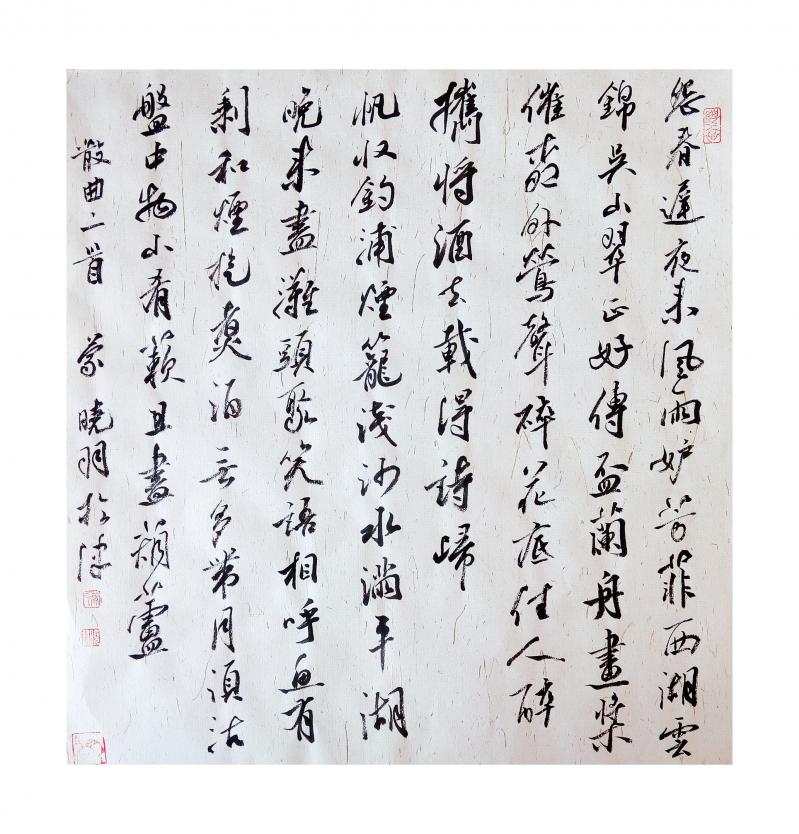 怨春遲夜来風雨妒芳菲西湖雲
錦吳山翠正好傳盃蘭舟畫槳
催都外鶯聲碎花底佳人醉
攜將酒去載得詩歸
帆收釣浦煙籠浅沙水滿平湖
晚来盡灘頭聚笑語相呼魚有
剩和煙旋煮酒無多帶月須沽
盤中物山肴野蔌且盡葫蘆
散曲二首 晓明於津